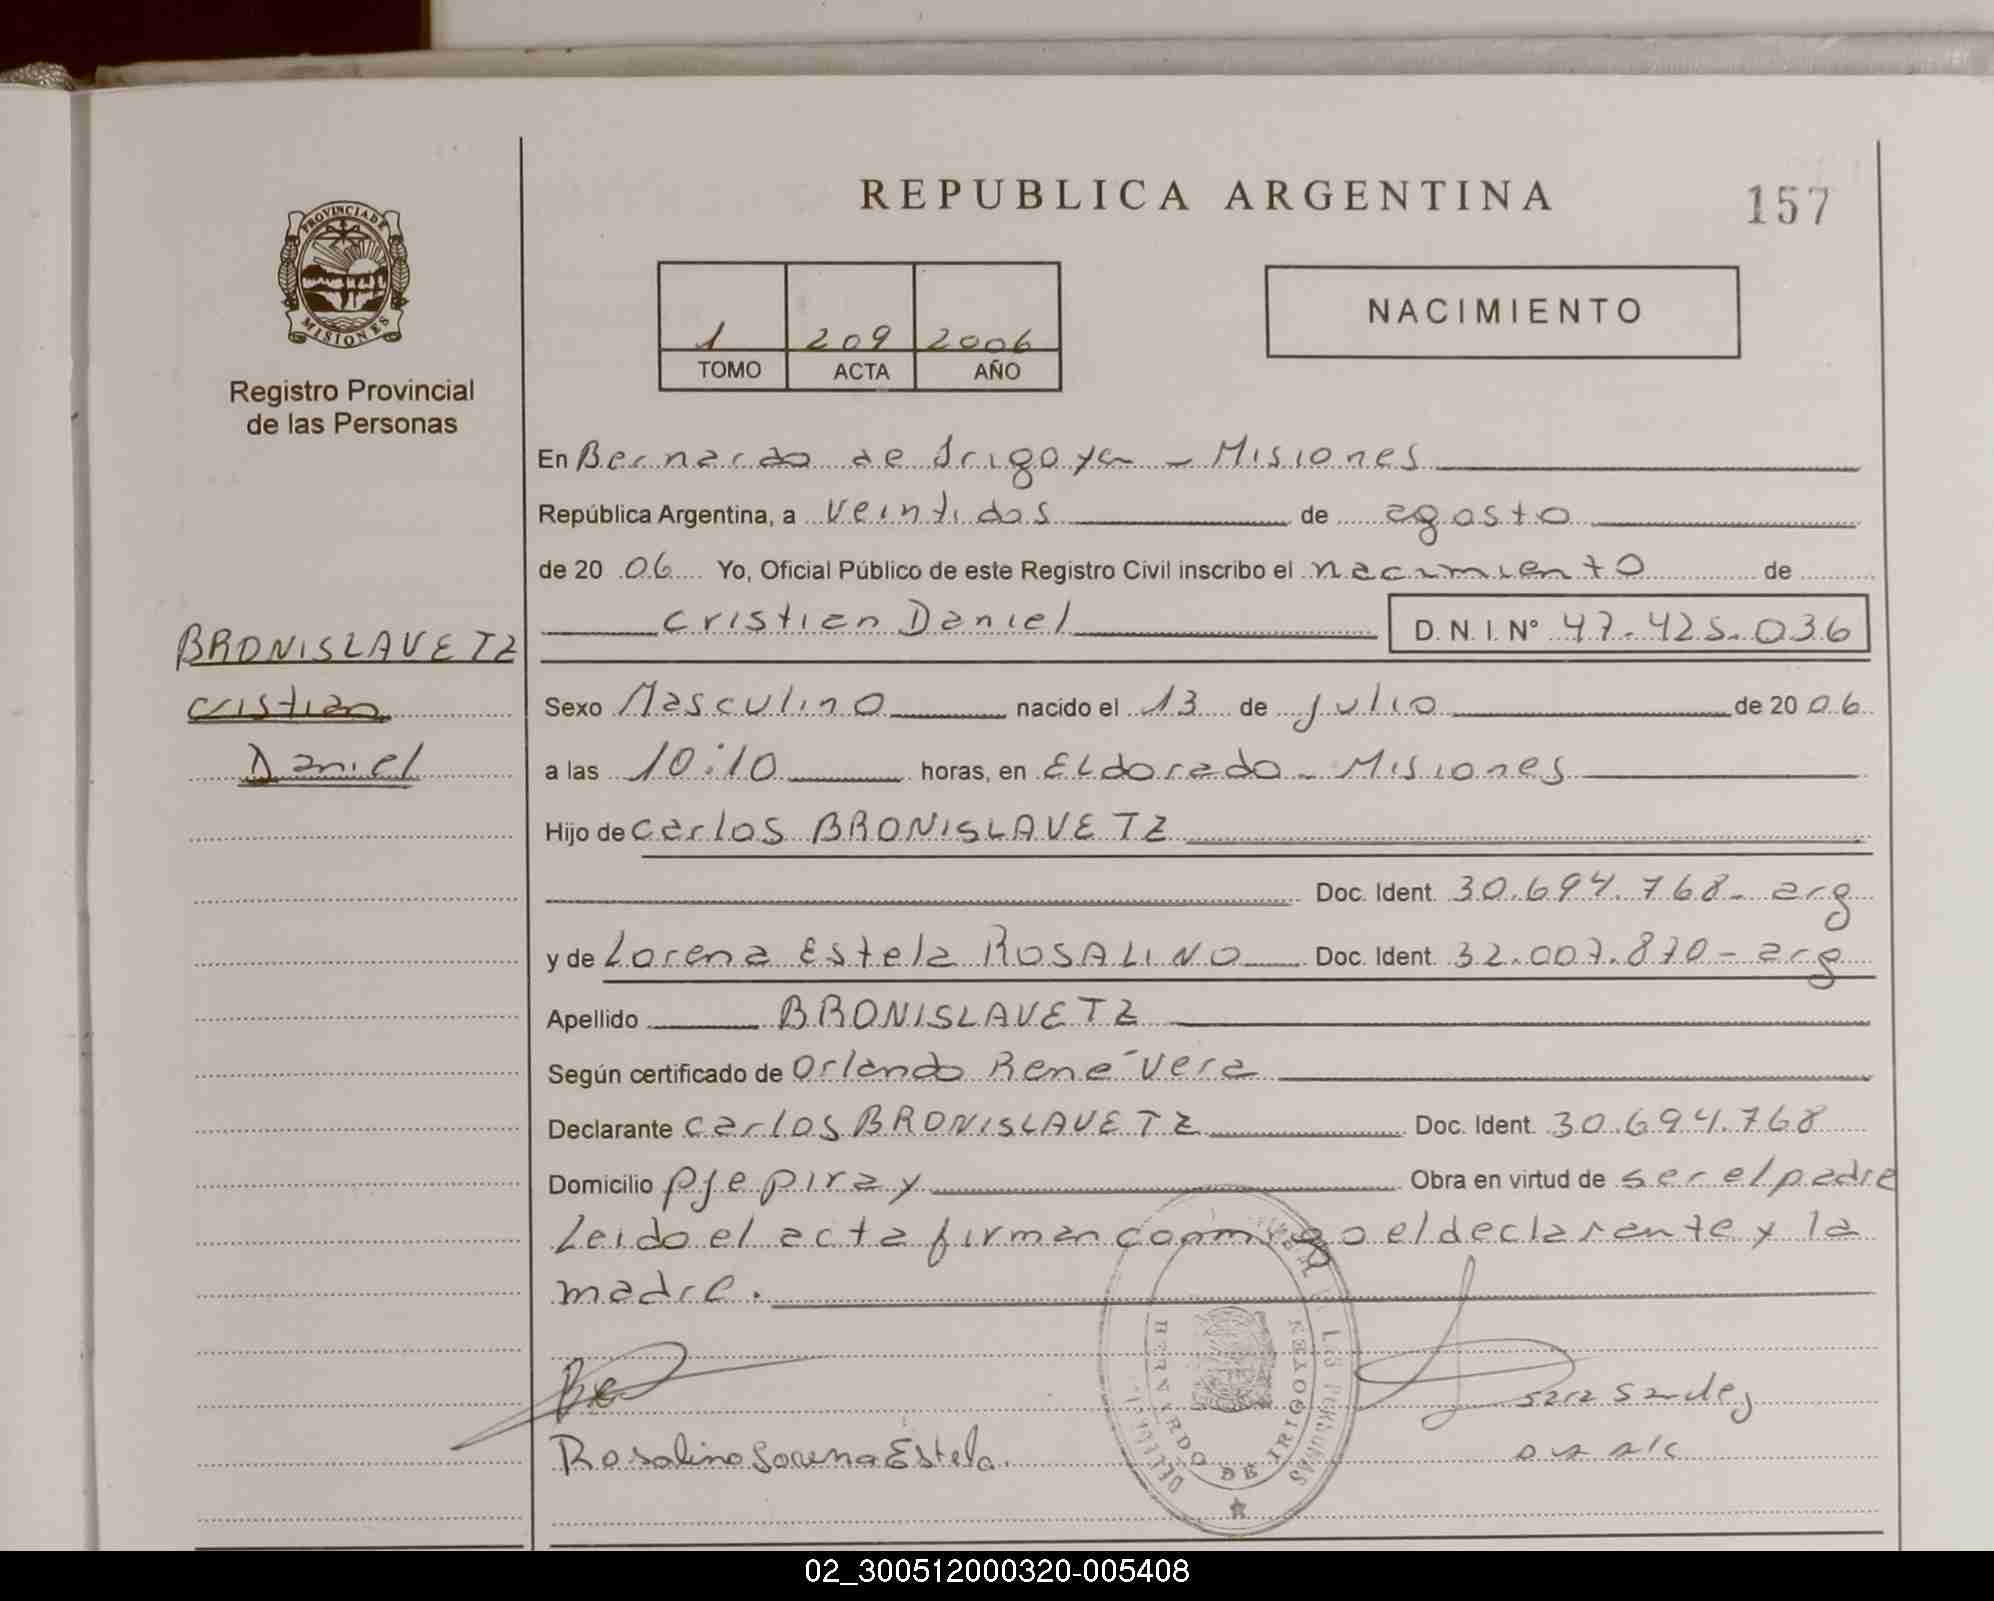 REPUBLICA ARGENTINA
157
PROVINCIA DE
MISIONES
Registro Provincial
de las Personas
1 209 2006
TOMO ACTA AÑO
NACIMIENTO
BRONISLAVETZ
Cristian
Daniel
En Bernardo de Irigoyen - Misiones
República Argentina, a veintidos de agosto
de 20 06 Yo, Oficial Público de este Registro Civil inscribo el nacimiento de
Cristian Daniel D.N.I. N° 47.425.036
Sexo Masculino nacido el 13 de julio de 20 06
a las 10:10 horas, en Eldorado - Misiones
Hijo de Carlos BRONISLAVETZ
Doc. Ident. 30.694.768 - arg
y de Lorena Estela ROSALINO Doc. Ident. 32.007.870 - arg
Apellido BRONISLAVETZ
Según certificado de Orlando René Vera
Declarante Carlos BRONISLAVETZ Doc. Ident. 30.694.768
Domicilio Pje piray Obra en virtud de ser el padre
Leido el acta firman conmigo el declarante y la
madre.
Rosalino Lorena Estela.
BERNARDO DE IRIGOYEN
LAS PERSONAS
02_300512000320-005408